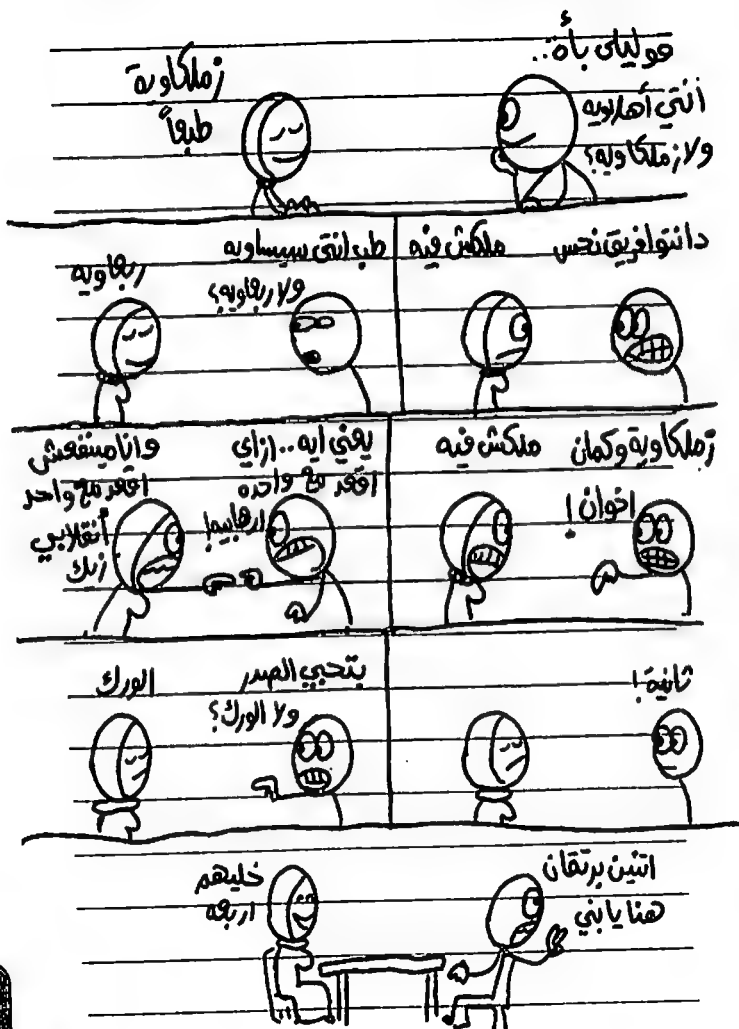 قوليلى بأه..
أنتي أهلاويه
ولا زملكاويه؟
زملكاوية
طبعاً
دانتوا فريق نحس
ملكش فيه
طب انتى سيساويه
ولا ربعاويه؟
ربعاويه
زملكاوية وكمان
اخوان!
ملكش فيه
يعني ايه..ازاي
اقعد مع واحده
ارهابيه!
وانا مينفعش
اقعد مع واحد
أنقلابي
زيك
ثانية!
بتحبي الصدر
ولا الورك؟
الورك
اتنين برتقان
هنا يابني
خليهم
اربعه